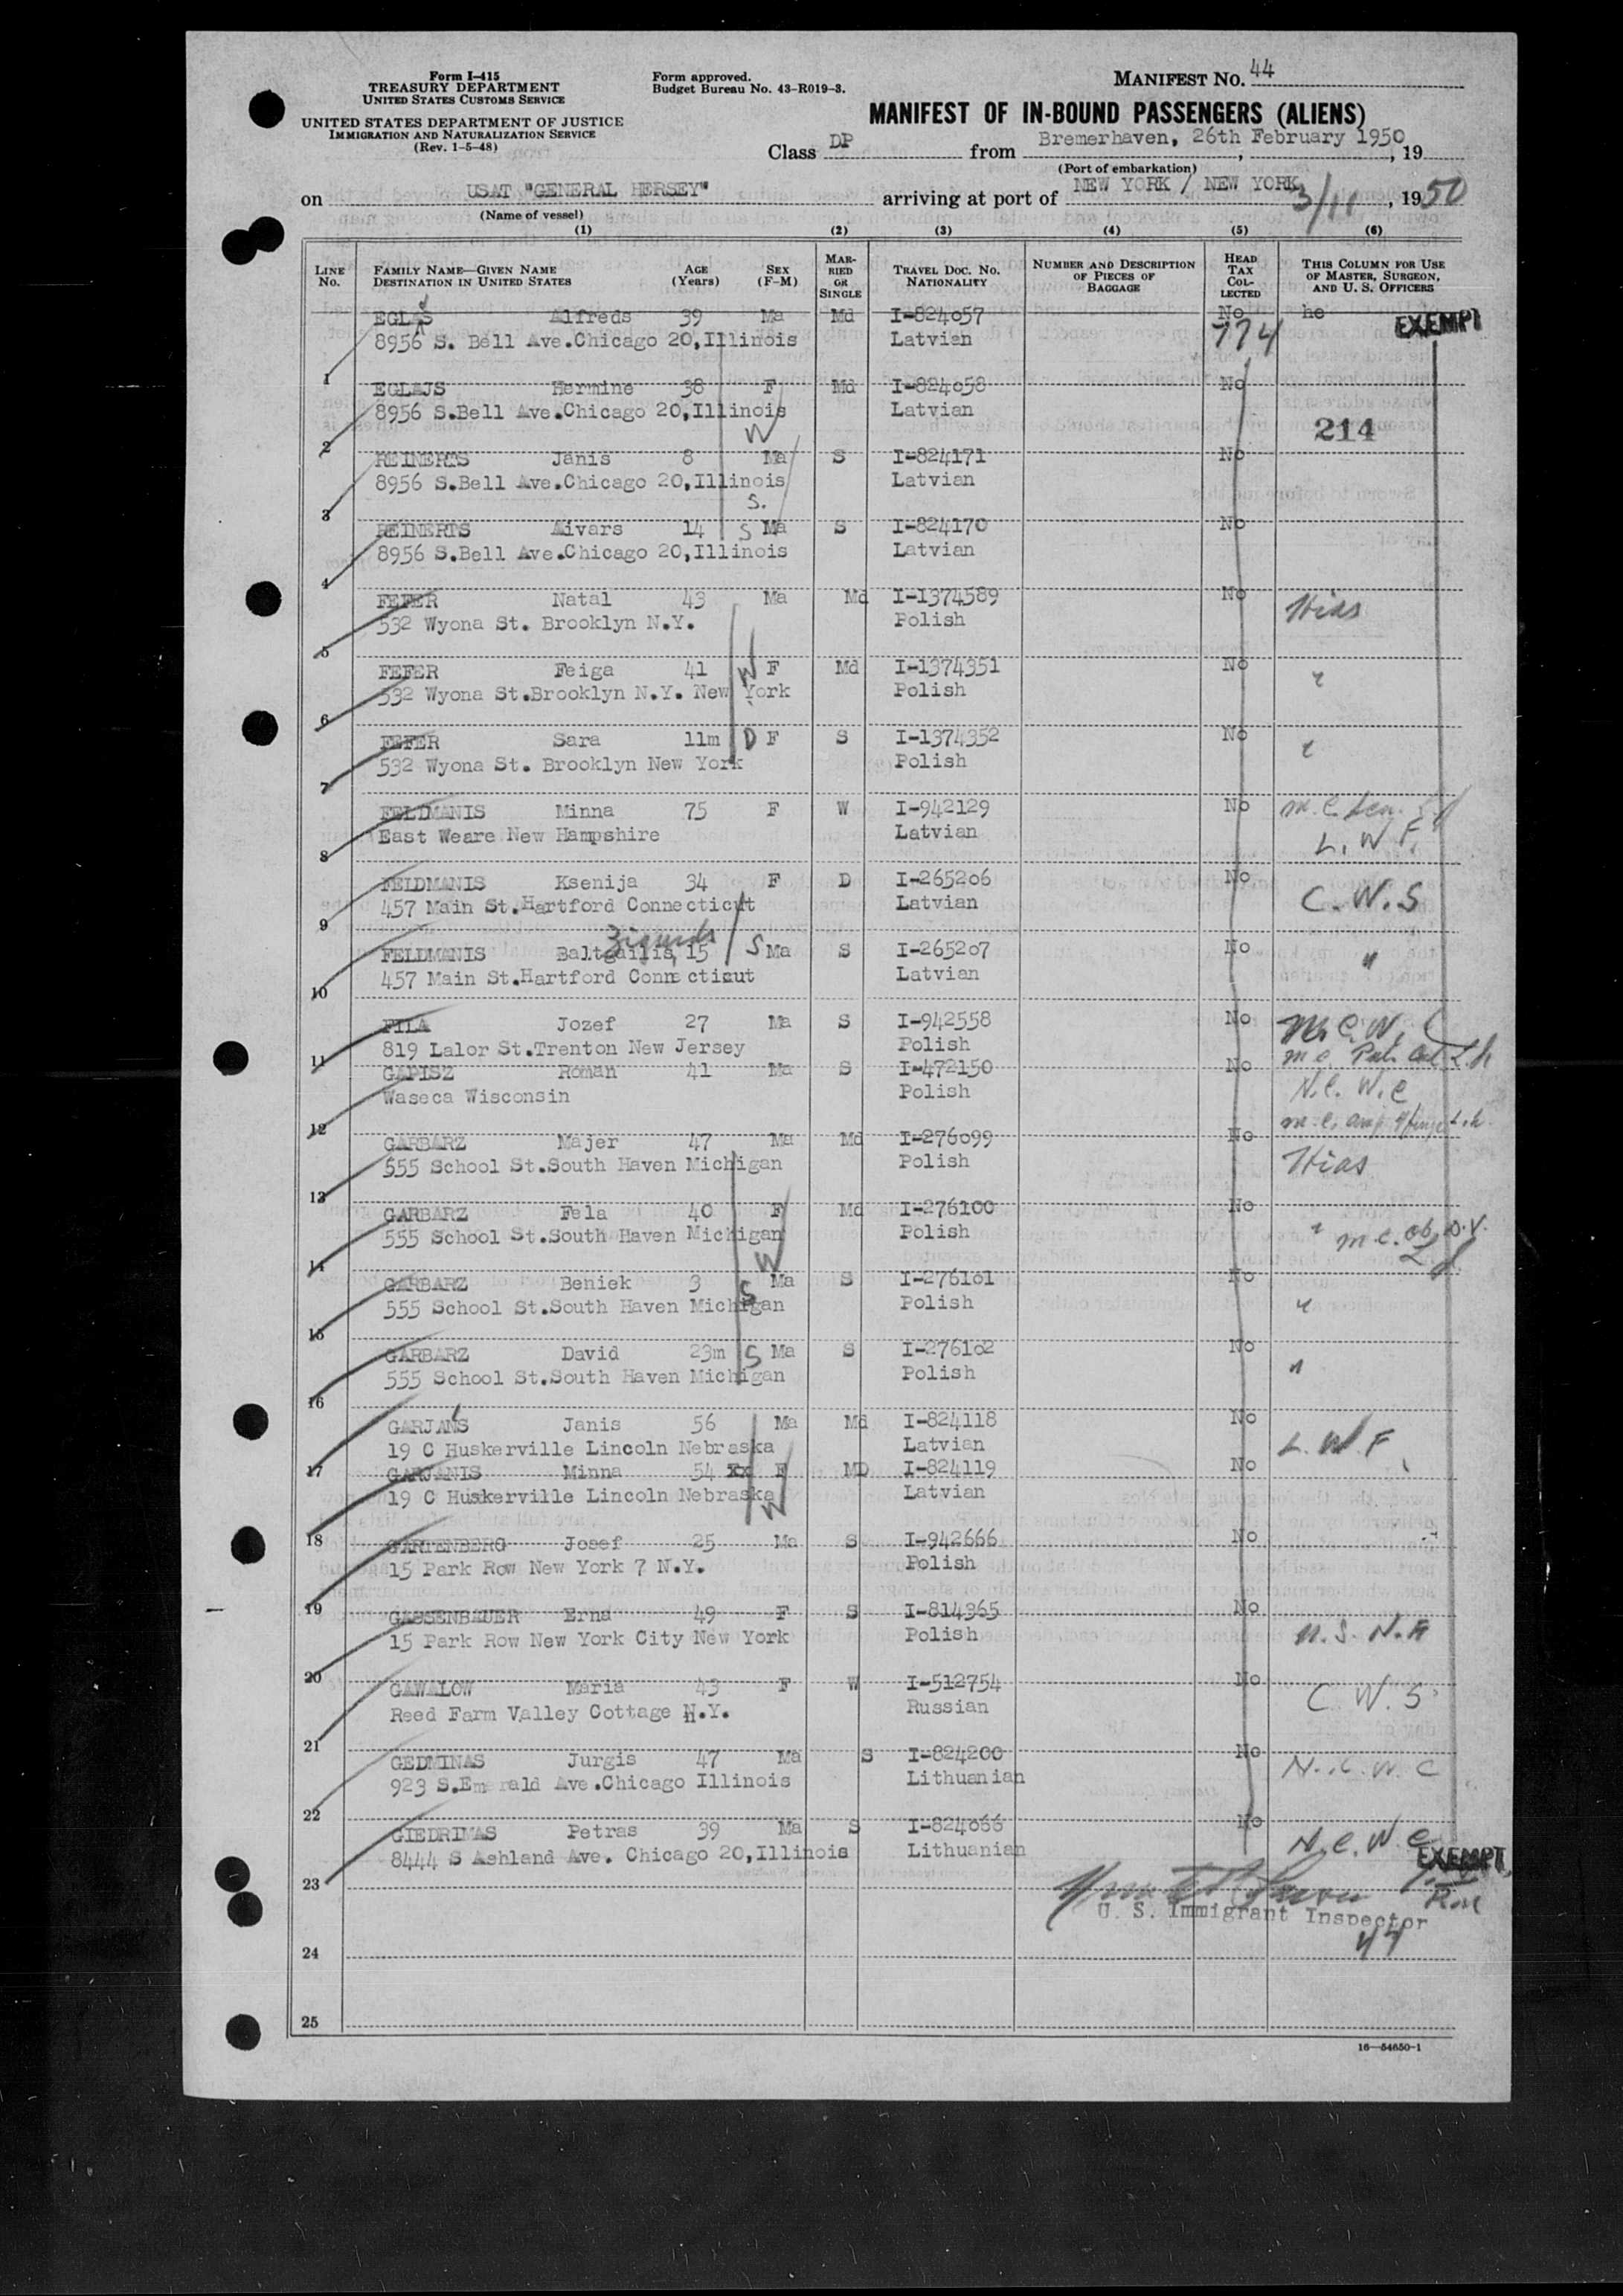 Form I-415
TREASURY DEPARTMENT
UNITED STATES CUSTOMS SERVICE
UNITED STATES DEPARTMENT OF JUSTICE
IMMIGRATION AND NATURALIZATION SERVICE
(Rev. 1-5-48)
Form approved.
Budget Bureau No. 43-R019-3.
MANIFEST NO. 44
MANIFEST OF IN-BOUND PASSENGERS (ALIENS)
Class DP from Bremerhaven, 26th February 1950, 19
(Port of embarkation)
on USAT "GENERAL HERSEY" arriving at port of NEW YORK / NEW YORK 3/11, 1950
(Name of vessel)
(1) (2) (3) (4) (5) (6)
LINE NO. FAMILY NAME—GIVEN NAME DESTINATION IN UNITED STATES AGE (Years) SEX (F-M) MARRIED OR SINGLE TRAVEL DOC. NO. NATIONALITY NUMBER AND DESCRIPTION OF PIECES OF BAGGAGE HEAD TAX COLLECTED THIS COLUMN FOR USE OF MASTER, SURGEON, AND U. S. OFFICERS
EGLAS Alfreds 39 Ma Md I-824057 No he EXEMPT
8956 S. Bell Ave.Chicago 20,Illinois Latvian 774
1
EGLAJS Hermine 38 F Md I-824058 No
8956 S.Bell Ave.Chicago 20,Illinois Latvian
W 214
2
REINERTS Janis 8 Ma S I-824171 No
8956 S.Bell Ave.Chicago 20,Illinois Latvian
S.
3
REINERTS Aivars 14 S Ma S I-824170 No
8956 S.Bell Ave.Chicago 20,Illinois Latvian
4
FEFER Natal 43 Ma Md I-1374589 No Hias
532 Wyona St. Brooklyn N.Y. Polish
5
FEFER Feiga 41 W F Md I-1374351 No "
532 Wyona St.Brooklyn N.Y. New York Polish
6
FEFER Sara 11m D F S I-1374352 No "
532 Wyona St. Brooklyn New York Polish
7
FELDMANIS Minna 75 F W I-942129 No m.c. Sen.
East Weare New Hampshire Latvian L.W.F.
8
FELDMANIS Ksenija 34 F D I-265206 No
457 Main St.Hartford Connecticut Latvian C.W.S
9
FELDMANIS Baltgailis, 15 S Ma S I-265207 No "
457 Main St.Hartford Connecticut Latvian
10
FILA Jozef 27 Ma S I-942558 No
819 Lalor St.Trenton New Jersey Polish
11
GAPISZ Roman 41 Ma S I-472150 No
Waseca Wisconsin Polish N.C.W.C
12
GARBARZ Majer 47 Ma Md I-276099 No
555 School St.South Haven Michigan Polish Hias
13
GARBARZ Fela 40 F Md I-276100 No
555 School St.South Haven Michigan Polish "
W
14
GARBARZ Beniek 3 S Ma S I-276101 No
555 School St.South Haven Michigan Polish "
15
GARBARZ David 23m S Ma S I-276102 No
555 School St.South Haven Michigan Polish "
16
GARJANS Janis 56 Ma Md I-824118 No
19 C Huskerville Lincoln Nebraska Latvian L.W.F.
17
GARJANIS Minna 54 xx F MD I-824119 No
19 C Huskerville Lincoln Nebraska Latvian
W
18
GARTENBERG Josef 25 Ma S I-942666 No
15 Park Row New York 7 N.Y. Polish
19
GASSENBAUER Erna 49 F S I-814365 No
15 Park Row New York City New York Polish
20
GAWALOW Maria 43 F W I-512754 No
Reed Farm Valley Cottage N.Y. Russian C.W.S
21
GEDMINAS Jurgis 47 Ma S I-824200 No
923 S.Emerald Ave.Chicago Illinois Lithuanian N.C.W.C
22
GIEDRIMAS Petras 39 Ma S I-824066 No
8444 S Ashland Ave. Chicago 20,Illinois Lithuanian N.C.W.C
EXEMPT
23
U. S. Immigrant Inspector
24
25
16—54650-1